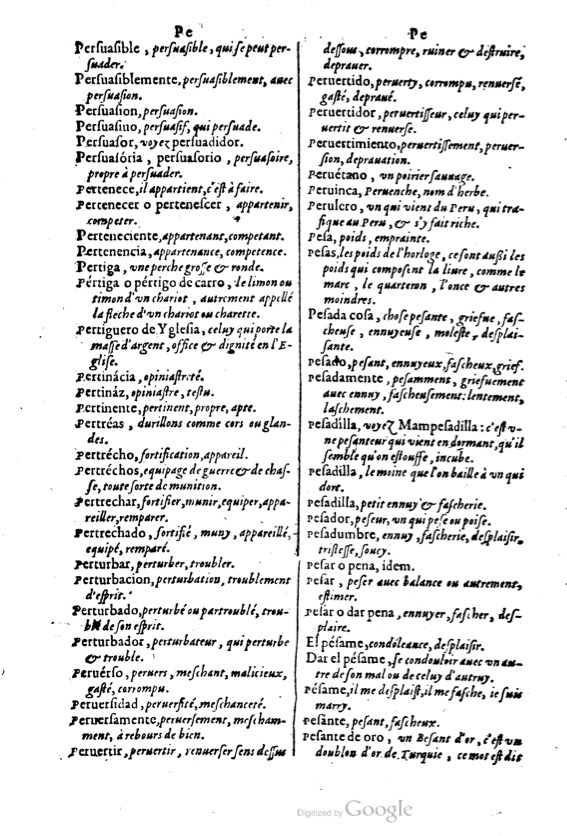 Pe
Persuasible, persuasible, qui se peut per-
suader.
Persuasiblemente, persuasiblement, auec
persuasion.
Persuasion, persuasion.
Persuasiuo, persuasif, qui persuade.
Persuasor, voyez persuadidor.
Persuasória, persuasorio, persuasoire,
propre à persuader.
Pertenece, il appartient, c'est à faire.
Pertenecer o pertenescer, appartenir,
competer.
Perteneciente, appartenant, competant.
Pertenencia, appartenance, competence.
Pertiga, vne perche grosse & ronde.
Pértiga o pértigo de carro, le limon ou
timon d'vn chariot, autrement appellé
la fleche d'vn chariot ou charette.
Pertiguero de Yglesia, celuy qui porte la
masse d'argent, office & dignité en l'E-
glise.
Pertinácia, opiniastreté.
Pertináz, opiniastre, testu.
Pertinente, pertinent, propre, apte.
Pertréas, durillons comme cors ou glan-
des.
Pertrécho, fortification, appareil.
Pertréchos, equipage de guerre & de chas-
se, toute sorte de munition.
Pertrechar, fortifier, munir, equiper, appa-
reiller, remparer.
Pertrechado, fortifié, muny, appareillé,
equipé, remparé.
Perturbar, perturber, troubler.
Perturbacion, perturbation, troublement
d'esprit.
Perturbado, perturbé ou partroublé, trou-
blé de son esprit.
Perturbador, perturbateur, qui perturbe
& trouble.
Peruérso, peruers, meschant, malicieux,
gasté, corrompu.
Peruersidad, peruersité, meschanceté.
Peruersamente, peruersement, mescham-
ment, à rebours de bien.
Peruertir, peruertir, renuerser sens dessus
Pe
dessous, corrompre, ruiner & destruire,
deprauer.
Peruertido, peruerty, corrompu, renuersé,
gasté, depraué.
Peruertidor, peruertisseur, celuy qui per-
uertit & renuerse.
Peruertimiento, peruertissement, peruer-
sion, deprauation.
Peruétano, vn poirier sauuage.
Peruinca, Peruenche, nom d'herbe.
Perulero, vn qui vient du Peru, qui tra-
fique au Peru, & s'y fait riche.
Pesa, poids, emprainte.
Pesas, les poids de l'horloge, ce sont aussi les
poids qui composent la liure, comme le
marc, le quarteron, l'once & autres
moindres.
Pesada cosa, chose pesante, griefue, fas-
cheuse, ennuyeuse, moleste, desplai-
sante.
Pesado, pesant, ennuyeux, fascheux, grief.
Pesadamente, pesamment, griefuement
auec ennuy, fascheusement: lentement,
laschement.
Pesadilla, voyez Mampesadilla: c'est v-
ne pesanteur qui vient en dormant, qu'il
semble qu'on estouffe, incube.
Pesadilla, le moine que l'on baille à vn qui
dort.
Pesadilla, petit ennuy & fascherie.
Pesador, peseur, vn qui pese ou poise.
Pesadumbre, ennuy, fascherie, desplaisir,
tristesse, soucy.
Pesar o pena, idem.
Pesar, peser auec balance ou autrement,
estimer.
Pesar o dar pena, ennuyer, fascher, des-
plaire.
El pésame, condoleance, desplaisir.
Dar el pésame, se condouloir auec vn au-
tre de son mal ou de celuy d'autruy.
Pésame, il me desplaist, il me fasche, ie suis
marry.
Pesante, pesant, fascheux.
Pesante de oro, vn Besant d'or, c'est vn
doublon d'or de Turquie, ce mot est dit
Digitized by Google